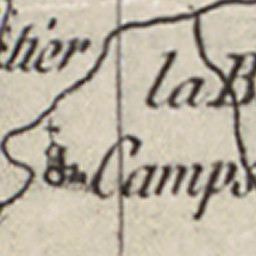 tier
la B
Camps